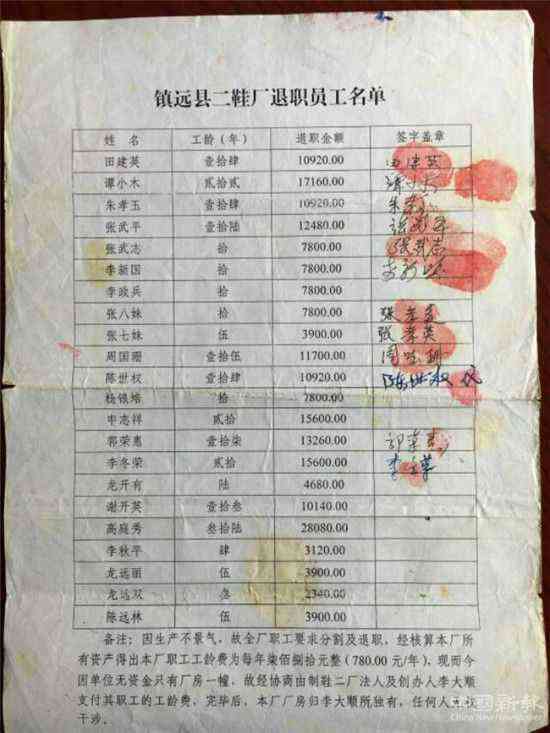 镇远县二鞋厂退职员工名单
姓 名 工龄（年） 退职金额 签字盖章
田建英 壹拾肆 10920.00 田建英
谭小木 贰拾贰 17160.00
朱孝玉 壹拾肆 10920.00
张武平 壹拾陆 12480.00
张武志 拾 7800.00 张武志
李新国 拾 7800.00
李政兵 拾 7800.00
张八妹 拾 7800.00
张七妹 伍 3900.00 张孝英
周国珊 壹拾伍 11700.00
陈世权 壹拾肆 10920.00
杨银培 拾 7800.00
申志祥 贰拾 15600.00
郭荣惠 壹拾柒 13260.00
李冬荣 贰拾 15600.00
龙开有 陆 4680.00
谢开英 壹拾叁 10140.00
高庭秀 叁拾陆 28080.00
李秋平 肆 3120.00
龙远丽 伍 3900.00
龙远双 叁 2340.00
陈远林 伍 3900.00
备注：因生产不景气，故全厂职工要求分割及退职，经核算本厂所
有资产得出本厂职工工龄费为每年柒佰捌拾元整（780.00元/年），现而今
因单位无资金只有厂房一幢，故经协商由制鞋二厂法人及创办人李大顺
支付其职工的工龄费，完毕后，本厂厂房归李大顺所独有，任何人无权
干涉。
中国新报
China News Online